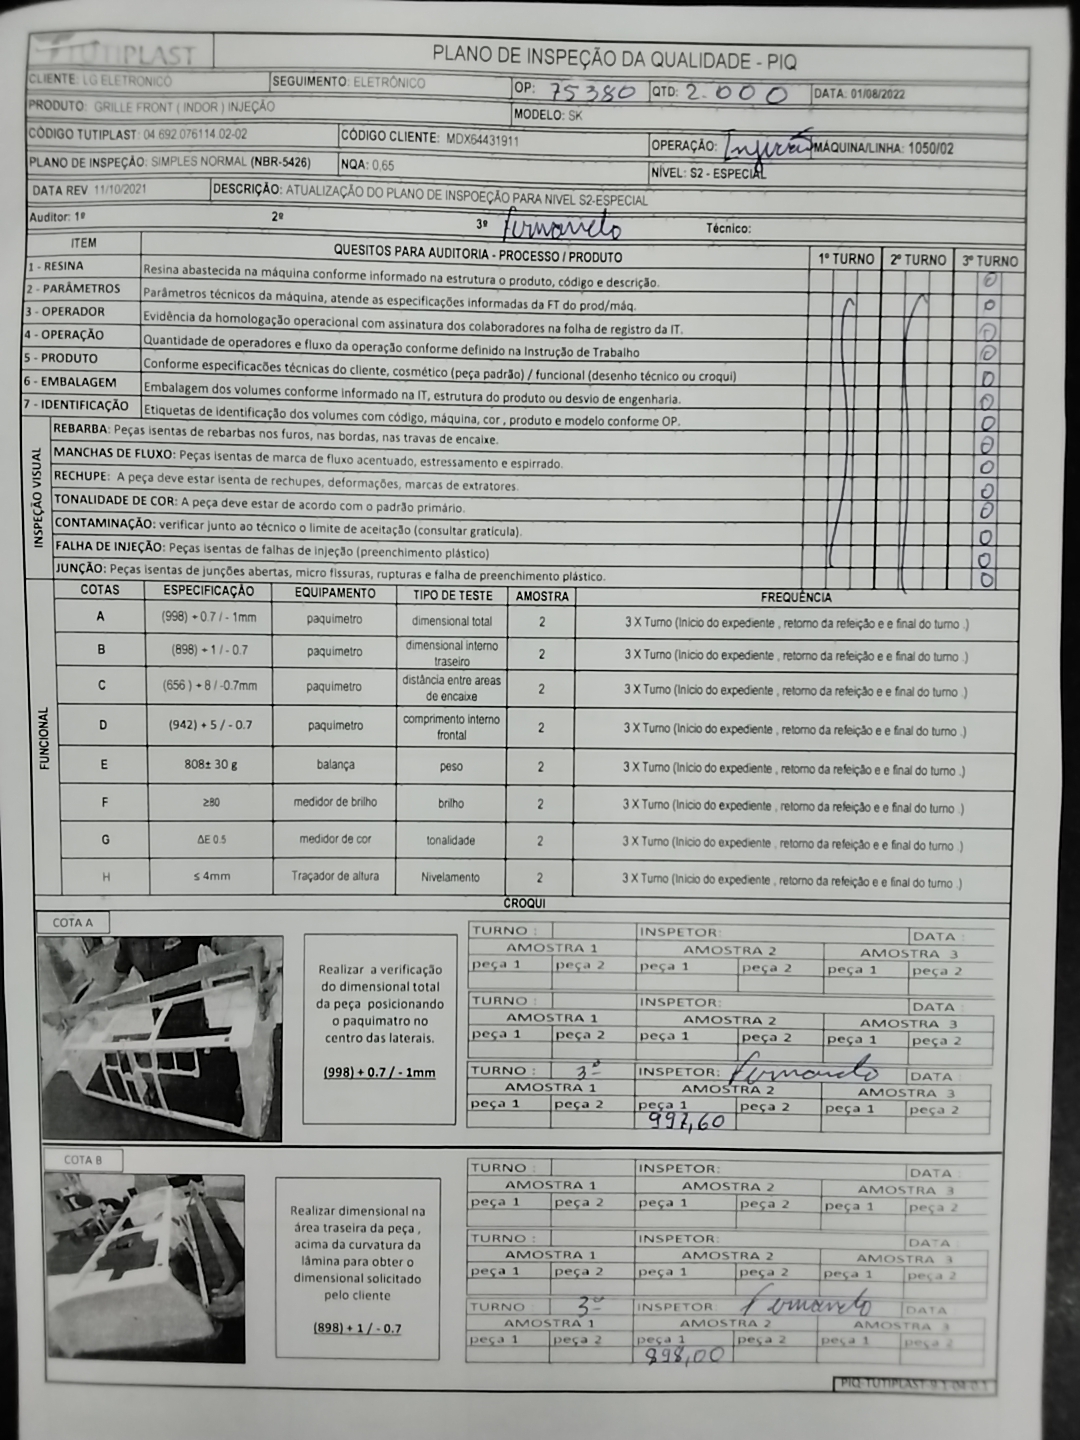 TUTIPLAST
PLANO DE INSPEÇÃO DA QUALIDADE - PIQ
CLIENTE: LG ELETRONICO SEGUIMENTO: ELETRÔNICO OP: 75380 QTD: 2.000 DATA: 01/08/2022
PRODUTO: GRILLE FRONT ( INDOR ) INJEÇÃO MODELO: SK
CÓDIGO TUTIPLAST: 04 692 076114.02-02 CÓDIGO CLIENTE: MDX64431911 OPERAÇÃO: Injeção MÁQUINA/LINHA: 1050/02
PLANO DE INSPEÇÃO: SIMPLES NORMAL (NBR-5426) NQA: 0,65 NÍVEL: S2 - ESPECIAL
DATA REV 11/10/2021 DESCRIÇÃO: ATUALIZAÇÃO DO PLANO DE INSPOEÇÃO PARA NIVEL S2-ESPECIAL
Auditor: 1º 2º 3º Fernando Técnico:
ITEM QUESITOS PARA AUDITORIA - PROCESSO / PRODUTO 1º TURNO 2º TURNO 3º TURNO
1 - RESINA Resina abastecida na máquina conforme informado na estrutura o produto, código e descrição.
2 - PARÂMETROS Parâmetros técnicos da máquina, atende as especificações informadas da FT do prod/máq.
3 - OPERADOR Evidência da homologação operacional com assinatura dos colaboradores na folha de registro da IT.
4 - OPERAÇÃO Quantidade de operadores e fluxo da operação conforme definido na Instrução de Trabalho
5 - PRODUTO Conforme especificacões técnicas do cliente, cosmético (peça padrão) / funcional (desenho técnico ou croqui)
6 - EMBALAGEM Embalagem dos volumes conforme informado na IT, estrutura do produto ou desvio de engenharia.
7 - IDENTIFICAÇÃO Etiquetas de identificação dos volumes com código, máquina, cor , produto e modelo conforme OP.
INSPEÇÃO VISUAL
REBARBA: Peças isentas de rebarbas nos furos, nas bordas, nas travas de encaixe.
MANCHAS DE FLUXO: Peças isentas de marca de fluxo acentuado, estressamento e espirrado.
RECHUPE: A peça deve estar isenta de rechupes, deformações, marcas de extratores.
TONALIDADE DE COR: A peça deve estar de acordo com o padrão primário.
CONTAMINAÇÃO: verificar junto ao técnico o limite de aceitação (consultar graticula).
FALHA DE INJEÇÃO: Peças isentas de falhas de injeção (preenchimento plástico)
JUNÇÃO: Peças isentas de junções abertas, micro fissuras, rupturas e falha de preenchimento plástico.
FUNCIONAL
COTAS ESPECIFICAÇÃO EQUIPAMENTO TIPO DE TESTE AMOSTRA FREQUÊNCIA
A (998) + 0.7 / - 1mm paquimetro dimensional total 2 3 X Turno (Inicio do expediente , retorno da refeição e e final do turno .)
B (898) + 1 / - 0.7 paquimetro dimensional interno traseiro 2 3 X Turno (Inicio do expediente , retorno da refeição e e final do turno .)
C (656 ) + 8 / -0.7mm paquimetro distância entre areas de encaixe 2 3 X Turno (Inicio do expediente , retorno da refeição e e final do turno .)
D (942) + 5 / - 0.7 paquimetro comprimento interno frontal 2 3 X Turno (Inicio do expediente , retorno da refeição e e final do turno .)
E 808± 30 g balança peso 2 3 X Turno (Inicio do expediente , retorno da refeição e e final do turno .)
F ≥80 medidor de brilho brilho 2 3 X Turno (Inicio do expediente , retorno da refeição e e final do turno .)
G ΔE 0.5 medidor de cor tonalidade 2 3 X Turno (Inicio do expediente , retorno da refeição e e final do turno .)
H ≤ 4mm Traçador de altura Nivelamento 2 3 X Turno (Inicio do expediente , retorno da refeição e e final do turno .)
CROQUI
COTA A
Realizar a verificação
do dimensional total
da peça posicionando
o paquimatro no
centro das laterais.
(998) + 0.7 / - 1mm
TURNO : INSPETOR: DATA :
AMOSTRA 1 AMOSTRA 2 AMOSTRA 3
peça 1 peça 2 peça 1 peça 2 peça 1 peça 2
TURNO : INSPETOR: DATA :
AMOSTRA 1 AMOSTRA 2 AMOSTRA 3
peça 1 peça 2 peça 1 peça 2 peça 1 peça 2
TURNO : 3º INSPETOR: Fernando DATA :
AMOSTRA 1 AMOSTRA 2 AMOSTRA 3
peça 1 peça 2 peça 1 peça 2 peça 1 peça 2
997,60
COTA B
Realizar dimensional na
área traseira da peça ,
acima da curvatura da
lâmina para obter o
dimensional solicitado
pelo cliente
(898) + 1 / - 0.7
TURNO : INSPETOR: DATA
AMOSTRA 1 AMOSTRA 2 AMOSTRA 3
peça 1 peça 2 peça 1 peça 2 peça 1 peça 2
TURNO : INSPETOR: DATA
AMOSTRA 1 AMOSTRA 2 AMOSTRA 3
peça 1 peça 2 peça 1 peça 2 peça 1 peça 2
TURNO 3º INSPETOR: Fernando DATA
AMOSTRA 1 AMOSTRA 2 AMOSTRA 3
peça 1 peça 2 peça 1 peça 2 peça 1 peça 2
898,00
PIQ-TUTIPLAST-9.1-04-0.1